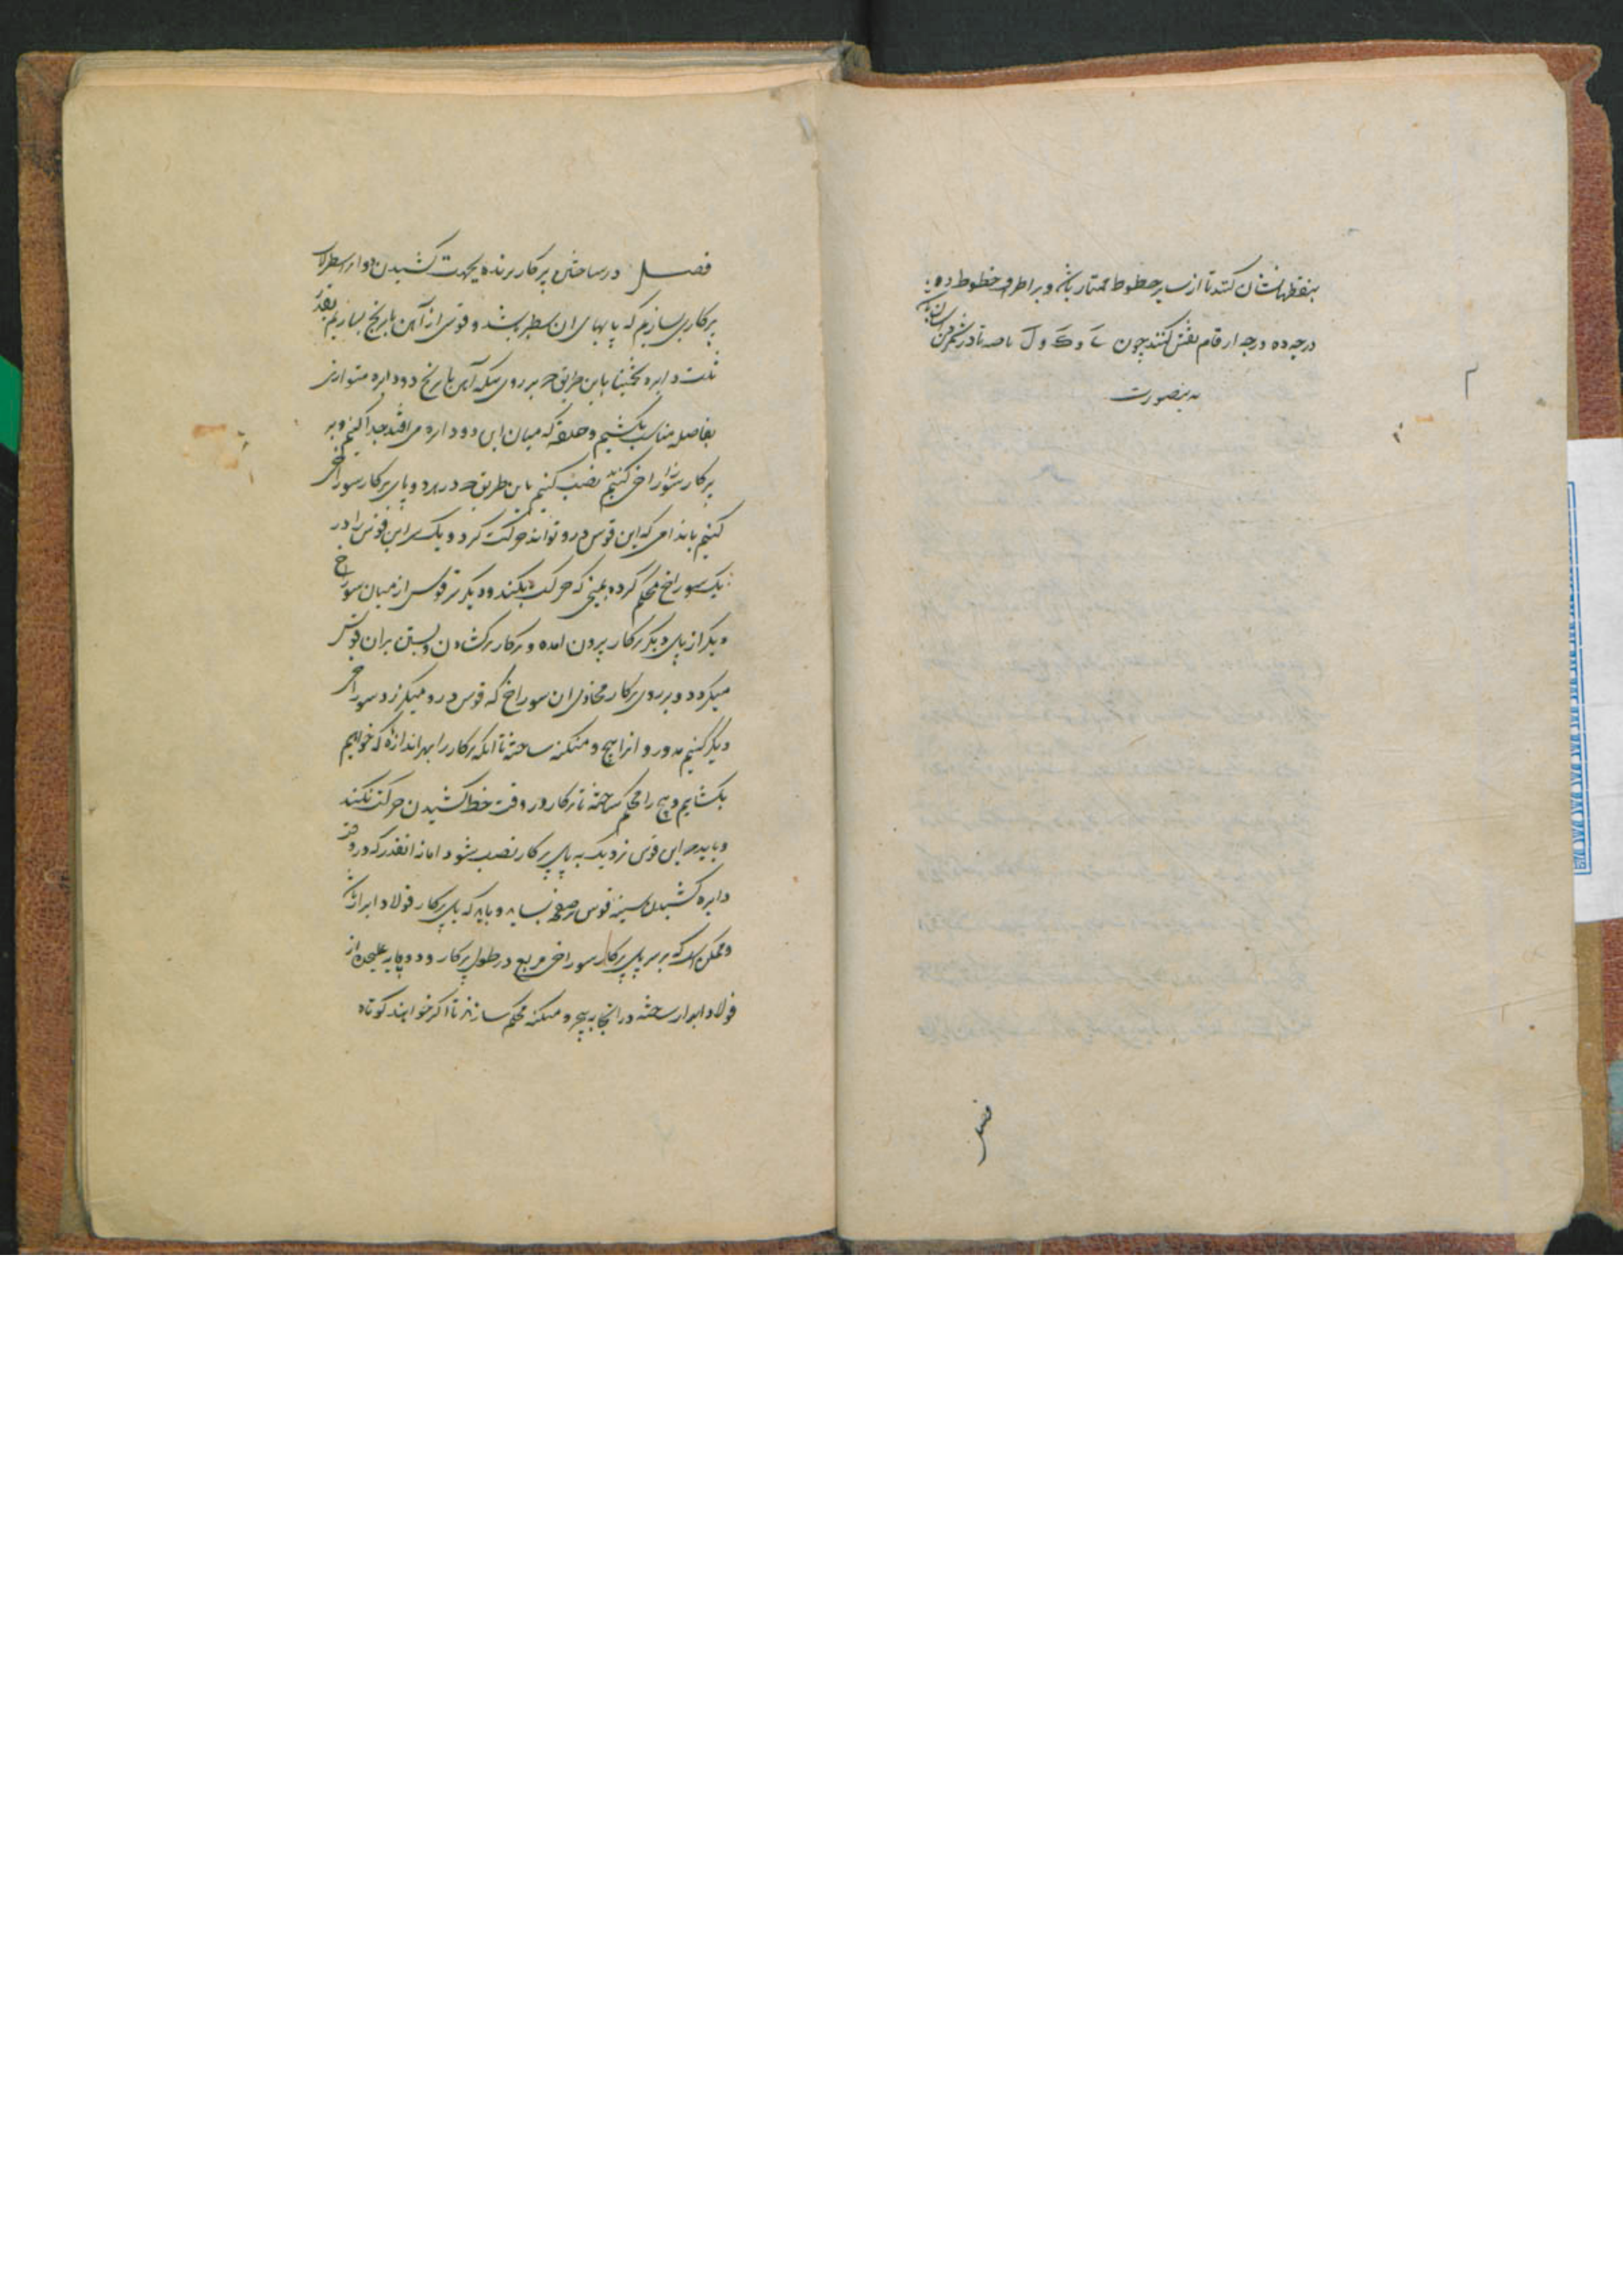 بنقطها نشان کنند تا از سایر خطوط ممتاز باشد و بر اطراف خطوط ده
درجه ده درجه ارقام نقش کنند چون ی و ک و ل تا صه تا در شمردن آسان باشد
بدینصورت
فصل
فصل در ساختن پرکار برنده بجهت کشیدن دوایر اسطرلاب
پرکاری بسازیم که پایهای ان سطبر باشد و قوسی از آهن یا برنج بسازیم بقدر
ثلث دایره تخمینا باین طریق که بر روی تنکه آهن یا برنج دو دایره متوازی
بفاصله مناسب بکشیم و حلقه که میان این دو دایره می افتد جدا کنیم و بر
پرکار سوراخی کنیم نصب کنیم باین طریق که در هر دو پای پرکار سوراخی
کنیم باندامی که این قوس درو تواند حرکت کرد و یک سر این قوس را در
یک سوراخ محکم کرده بمیخی که حرکت نکند و دیگر سر قوس از میان سوراخ
دیگر از پای دیگر پرکار بیرون امده و پرکار در کشادن و بستن بران قوس
میگردد و بر روی پرکار محاذی ان سوراخ که قوس درو میگذرد سوراخی
دیگر کنیم مدور و انرا پیچ و منکنه ساخته تا انکه پرکار را بهر اندازه که خواهیم
بکشایم و پیچ را محکم ساخته تا پرکار در وقت خط کشیدن حرکت نکند
و باید که این قوس نزدیک به پای پرکار نصب شود اما نه انقدر که در وقت
دایره کشیدن سینه قوس بر صفحه بساید و باید که پای پرکار فولاد ابدار باشد
و ممکن است که بر سر پای پرکار سوراخی مربع در طول پرکار و دو پایه علیحده از
فولاد ابدار ساخته در انجا به پیچ و منکنه محکم سازند تا اکر خواهند کوتاه